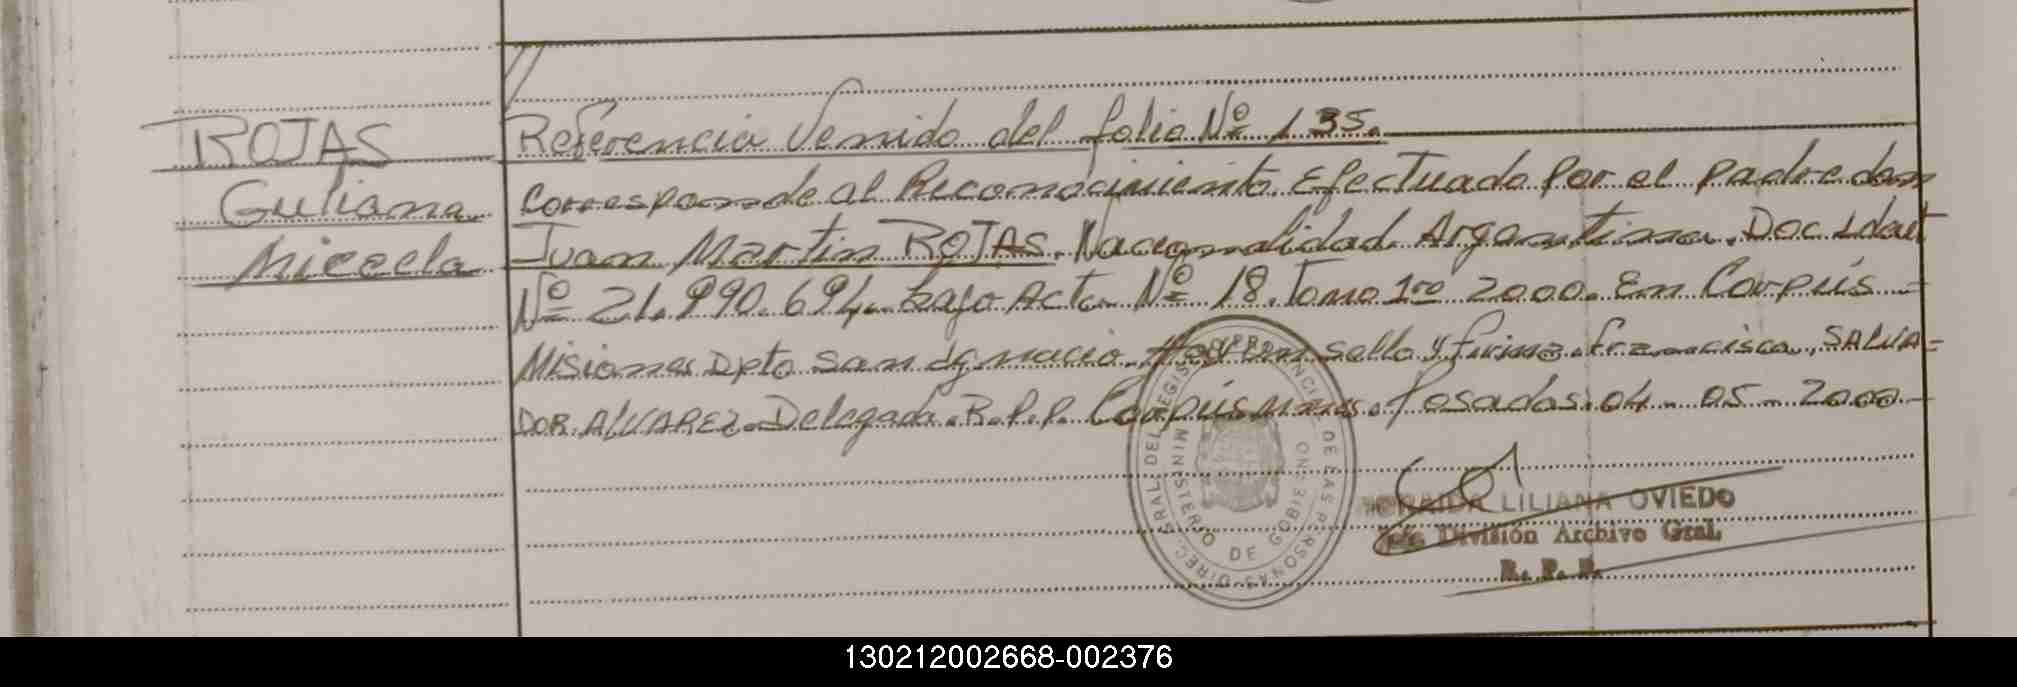 ROJAS
Guliana
Micaela
Referencia Venido del folio Nº 135.
Corresponde al Reconocimiento Efectuado Por el padre don
Juan Martin ROJAS. Nacionalidad Argentina. Doc Idat
Nº 21.990.694. bajo Acta Nº 18. Tomo 1ro 2000. En Corpús -
Misiones Dpto San Ignacio. Hay un sello y firma. Francisca. SALVA=
DOR ALVAREZ. Delegada. R.P.P. Corpús Mnes. Posadas. 04 - 05 - 2000 -
DIREC. GRAL. DEL REGISTRO PROVINCIAL DE LAS PERSONAS
MINISTERIO DE GOBIERNO
LILIANA OVIEDO
División Archivo Gral.
R. P. P.
130212002668-002376